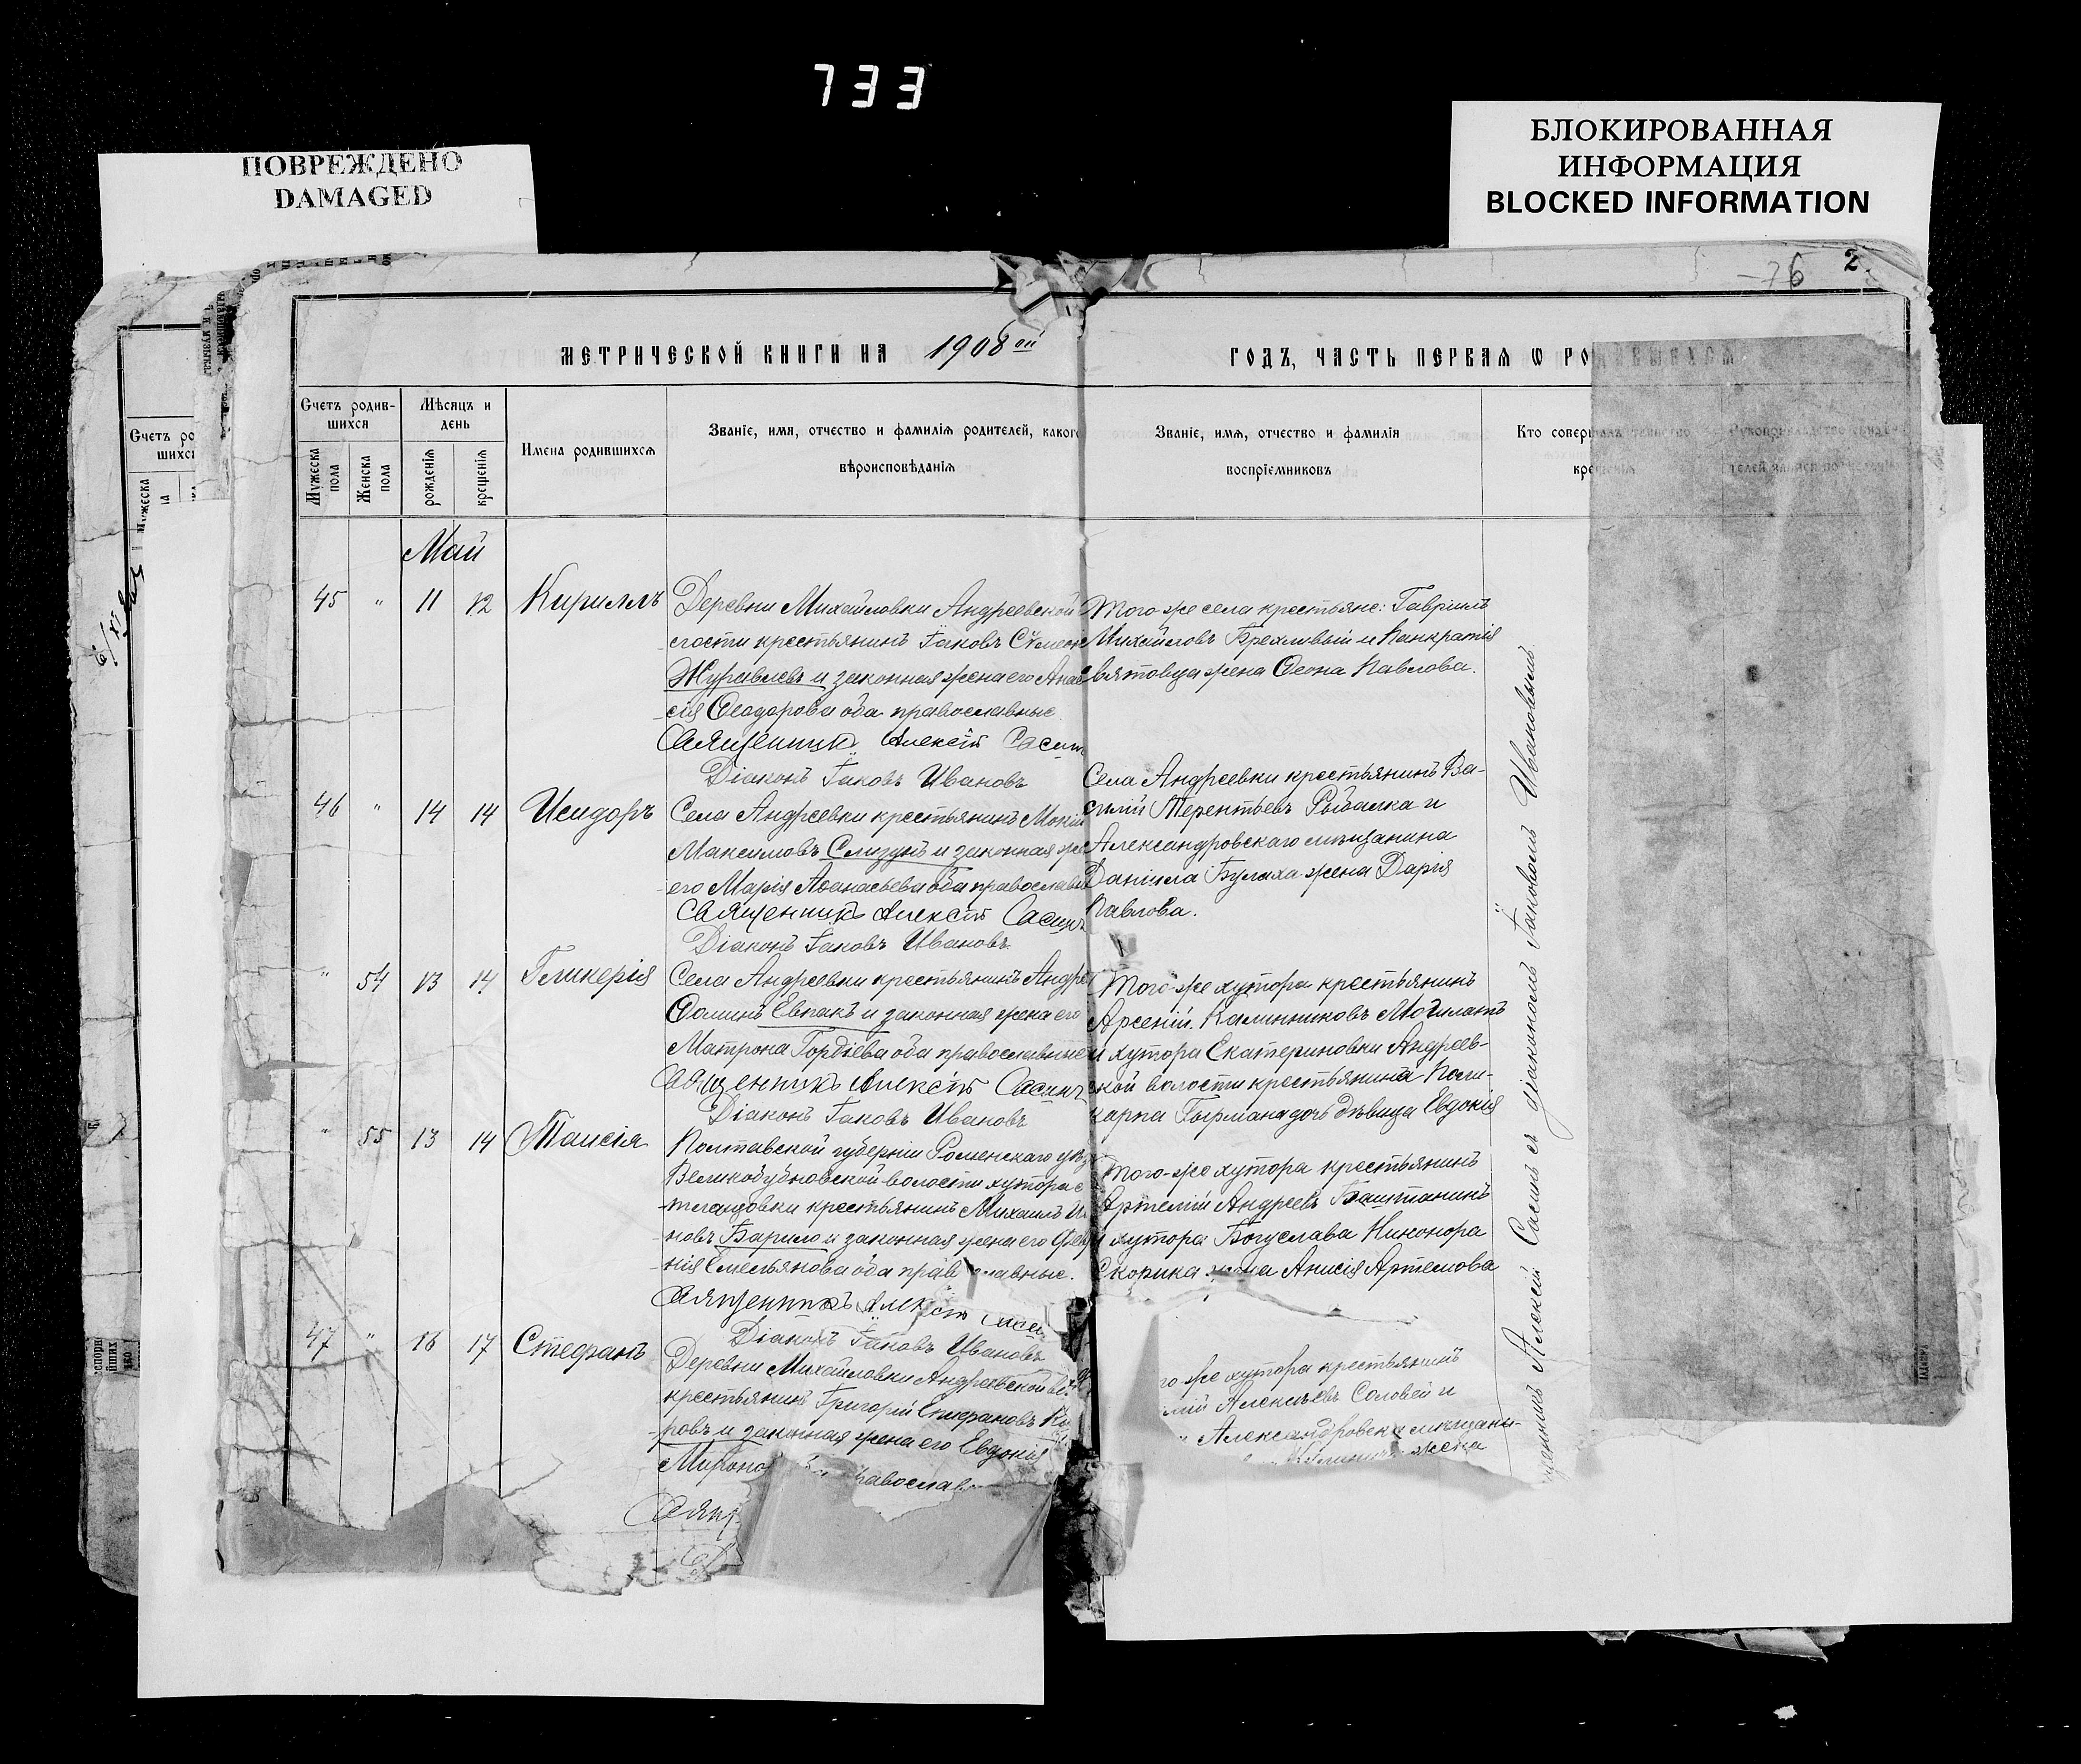 733
ПОВРЕЖДЕНО
DAMAGED
БЛОКИРОВАННАЯ
ИНФОРМАЦИЯ
BLOCKED INFORMATION
76
2
МЕТРИЧЕСКОЙ КНИГИ НА 1908 ой
ГОДЪ, ЧАСТЬ ПЕРВАЯ Ѡ РОДИВШИХСЯ
Счетъ родив-
шихся
Мужеска
пола
Женска
пола
Мѣсяцъ и
день
рожденія
крещенія
Имена родившихся
Званіе, имя, отчество и фамилія родителей, какого
вѣроисповѣданія
Званіе, имя, отчество и фамилія
воспріемниковъ
Кто совершалъ таинство
крещенія
Май
45 " 11 12 Кириллъ
Деревни Михайловки Андреевской
крестьянинъ Іаковъ
Журавлевъ и законная жена его Анас
сія Ѳеодорова оба православные
Священникъ Алексій Сасин
Діаконъ Іаковъ Ивановъ
Того-же села крестьяне: Гавріилъ
Михайловъ Брехливый и Панкратія
жена Ѳеона Павлова.
46 " 14 14 Исидоръ
Села Андреевки крестьянинъ Мокій
Максимовъ Слизунъ и законная же
его Марія Аѳанасьева оба православн
Священникъ Алексій Сасинъ
Діаконъ Іаковъ Ивановъ
Села Андреевки крестьянинъ Ва-
силій Терентьевъ Рыбалка и
Александровскаго мѣщанина
Даніила Булаха жена Дарія
Павлова.
" 54 13 14 Гликерія
Села Андреевки крестьянинъ Андре
Ѳоминъ Евпакъ и законная жена его
Матрона Гордіева оба православные
Священникъ Алексій Сасинъ
Діаконъ Іаковъ Ивановъ
Того-же хутора крестьянинъ
Арсеній Калинниковъ
и хутора Екатериновки Андреев-
ской волости крестьянина Поли-
карпа дочь дѣвица Евдокія
" 55 13 14 Таисія
Полтавской губерніи Роменскаго уѣз
Великобубновской волости хутора
крестьянинъ Михаилъ Ив
новъ Барило и законная жена его
нія Емельянова оба православные.
Священникъ Алексій
Діаконъ Іаковъ Ивановъ
Того-же хутора крестьянинъ
Артемій Андреевъ Баштанинъ
и хутора Богуслава Никонора
Скорика жена Анисія Артемова
47 " 16 17 Стефанъ
Деревни Михайловки Андреевской
крестьянинъ Григорій Стефановъ
ровъ и законная жена его Евдокія
Мироно православ
Свящ
го-же хутора крестьянинъ
Алексѣевъ Соловей и
Александровск мѣщани-
жена
щенникъ Алексій Сасинъ съ діакономъ Іаковомъ Ивановымъ